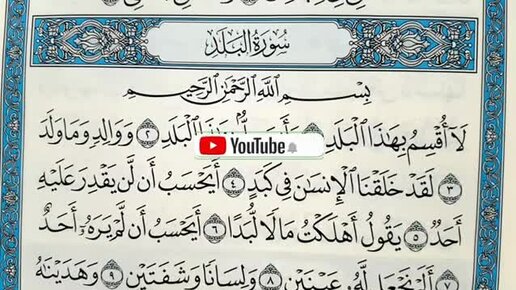 سُورَةُ البَلَدِ
بِسْمِ ٱللَّهِ ٱلرَّحْمَٰنِ ٱلرَّحِيمِ
لَآ أُقْسِمُ بِهَٰذَا ٱلْبَلَدِ ٱلْبَلَدِ ٢ وَوَالِدٍ وَمَا وَلَدَ
YouTube
٣ لَقَدْ خَلَقْنَا ٱلْإِنسَٰنَ فِى كَبَدٍ ٤ أَيَحْسَبُ أَن لَّن يَقْدِرَ عَلَيْهِ
أَحَدٌ ٥ يَقُولُ أَهْلَكْتُ مَالًا لُّبَدًا ٦ أَيَحْسَبُ أَن لَّمْ يَرَهُۥٓ أَحَدٌ
٧ أَلَمْ نَجْعَل لَّهُۥ عَيْنَيْنِ ٨ وَلِسَانًا وَشَفَتَيْنِ ٩ وَهَدَيْنَٰهُ